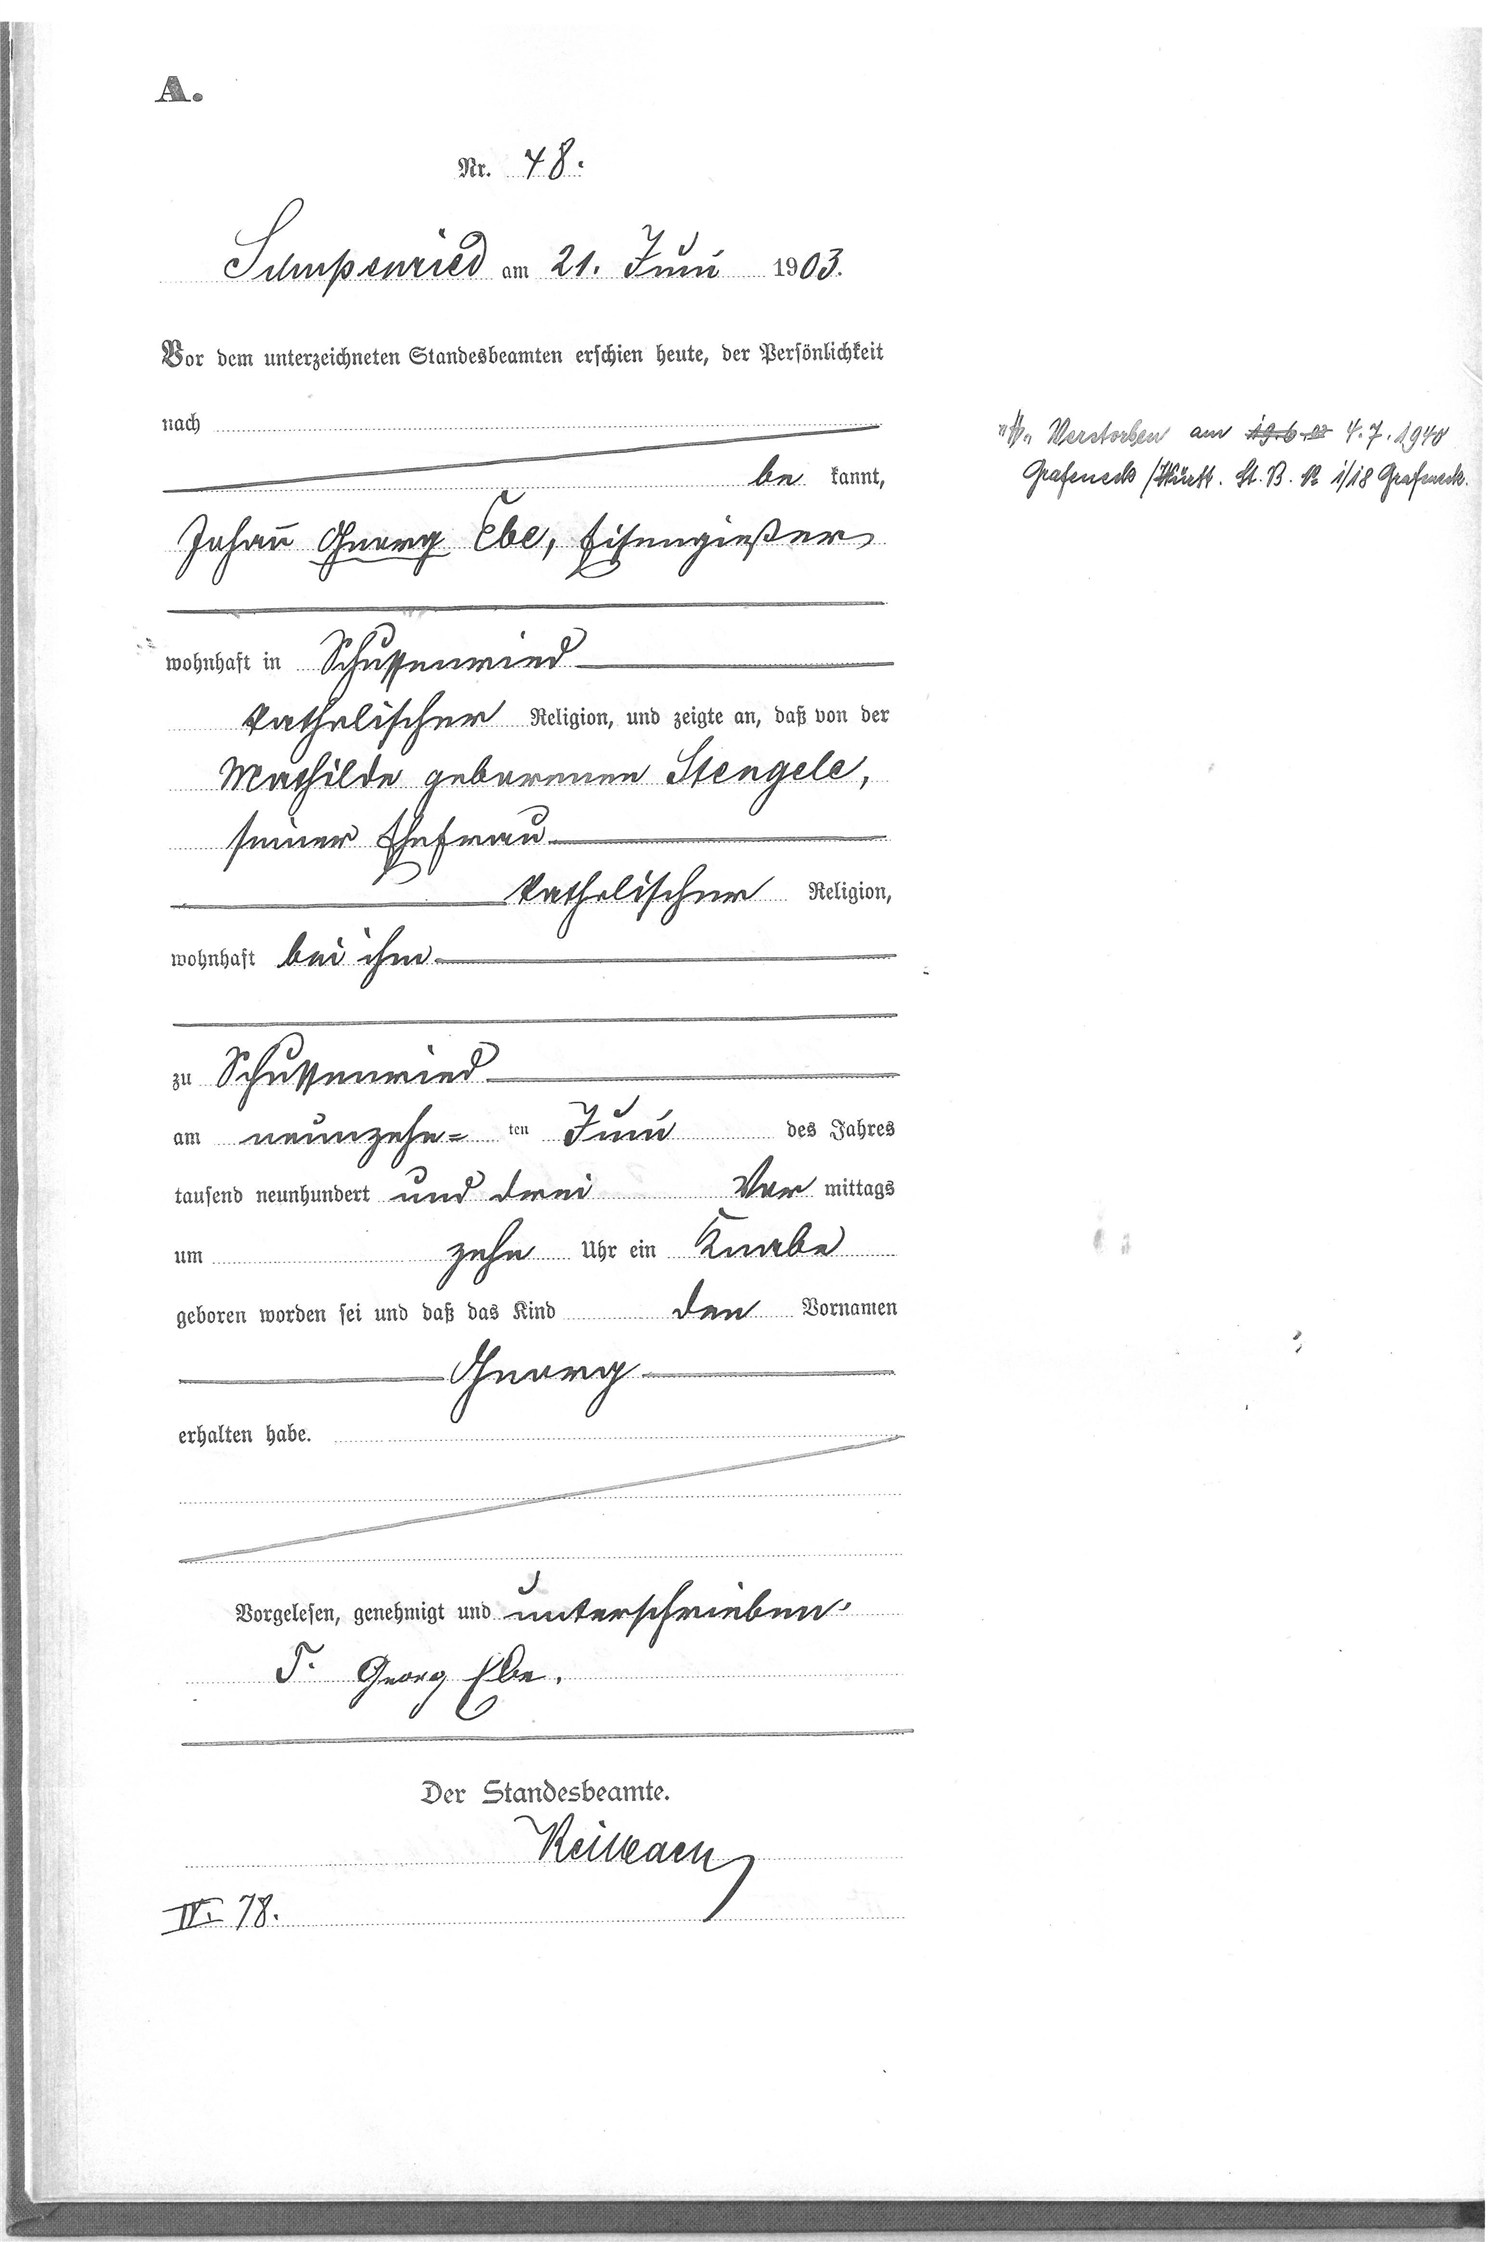 A.
Nr. 48.
Schussenried am 21. Juni 1903.
Vor dem unterzeichneten Standesbeamten erschien heute, der Persönlichkeit
nach
be kannt,
Johann Georg Ebe, Eisengießer
wohnhaft in Schussenried
katholischer Religion, und zeigte an, daß von der
Mathilde geborenen Stengele,
seiner Ehefrau
katholischer Religion,
wohnhaft bei ihm
zu Schussenried
am neunzehn= ten Juni des Jahres
tausend neunhundert und drei Vor mittags
um zehn Uhr ein Knabe
geboren worden sei und daß das Kind den Vornamen
Georg
erhalten habe.
Vorgelesen, genehmigt und unterschrieben.
J. Georg Ebe.
Der Standesbeamte.
IV. 78.
Verstorben am 19.6.03 4.7.1940
Grafeneck /Württ. St. B. Nr 1/18 Grafeneck.